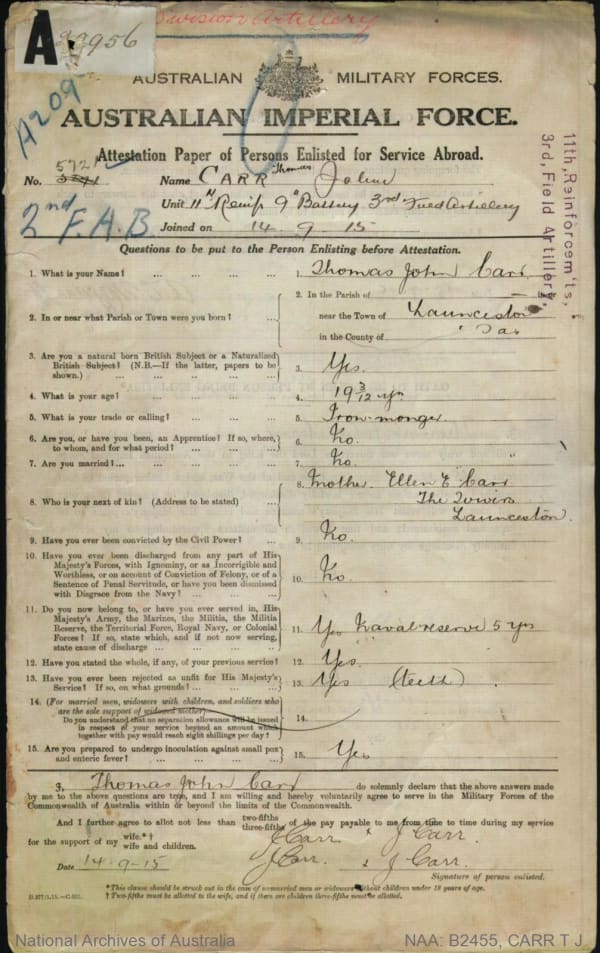 Division Artillery
A.
22956
A209
AUSTRALIAN MILITARY FORCES.
AUSTRALIAN IMPERIAL FORCE.
Attestation Paper of Persons Enlisted for Service Abroad.
5721
No. Name CARR Thomas John
Unit 11th Reinfs 9th Battery 3rd Field Artillery
2nd F.A.B.
Joined on 14-9-15
11th, Reinforcem'ts,
3rd, Field Artillery,
Questions to be put to the Person Enlisting before Attestation.
1. What is your Name? ... ... ... ... 1. Thomas John Carr
2. In or near what Parish or Town were you born? ... 2. In the Parish of
near the Town of Launceston
in the County of Tas
3. Are you a natural born British Subject or a Naturalized
British Subject? (N.B.—If the latter, papers to be
shown.) ... ... ... ... ... 3. Yes.
4. What is your age? ... ... ... ... 4. 19 3/12 yrs
5. What is your trade or calling? ... ... ... 5. Iron-monger
6. Are you, or have you been, an Apprentice? If so, where,
to whom, and for what period? ... ... ... 6. No.
7. Are you married? ... ... ... ... 7. No.
8. Who is your next of kin? (Address to be stated) ... 8. Mother Ellen E Carr
The Towers
Launceston
9. Have you ever been convicted by the Civil Power? ... 9. No.
10. Have you ever been discharged from any part of His
Majesty's Forces, with Ignominy, or as Incorrigible and
Worthless, or on account of Conviction of Felony, or of a
Sentence of Penal Servitude, or have you been dismissed
with Disgrace from the Navy? ... ... ... 10. No.
11. Do you now belong to, or have you ever served in, His
Majesty's Army, the Marines, the Militia, the Militia
Reserve, the Territorial Force, Royal Navy, or Colonial
Forces? If so, state which, and if not now serving,
state cause of discharge ... ... ... 11. Yes Naval reserve 5 yrs
12. Have you stated the whole, if any, of your previous service? 12. Yes.
13. Have you ever been rejected as unfit for His Majesty's
Service? If so, on what grounds? ... ... ... 13. Yes (teeth)
14. (For married men, widowers with children, and soldiers who
are the sole support of widowed mother)
Do you understand that no separation allowance will be issued
in respect of your service beyond an amount which
together with pay would reach eight shillings per day? 14.
15. Are you prepared to undergo inoculation against small pox
and enteric fever? ... ... ... ... 15. Yes
I, Thomas John Carr do solemnly declare that the above answers made
by me to the above questions are true, and I am willing and hereby voluntarily agree to serve in the Military Forces of the
Commonwealth of Australia within or beyond the limits of the Commonwealth.
And I further agree to allot not less than two-fifths three-fifths of the pay payable to me from time to time during my service
for the support of my wife.*† wife and children.
J Carr & J Carr.
J Carr. & J Carr.
Date 14-9-15
Signature of person enlisted.
*This clause should be struck out in the case of unmarried men or widowers without children under 18 years of age.
† Two-fifths must be allotted to the wife, and if there are children three-fifths must be allotted.
National Archives of Australia NAA: B2455, CARR T J